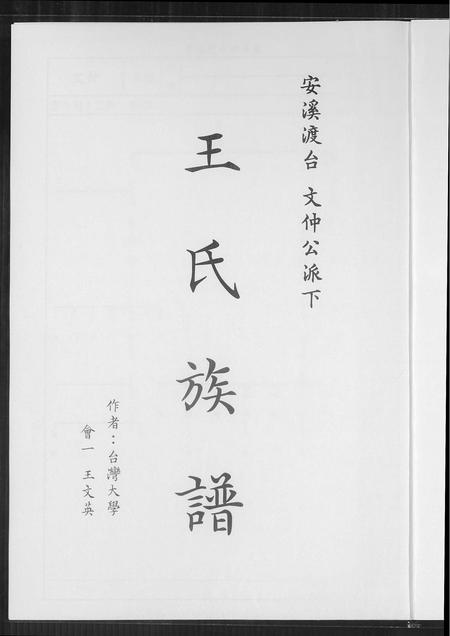 安溪渡台 文仲公派下
王氏族譜
作者：台灣大學
會一 王文英